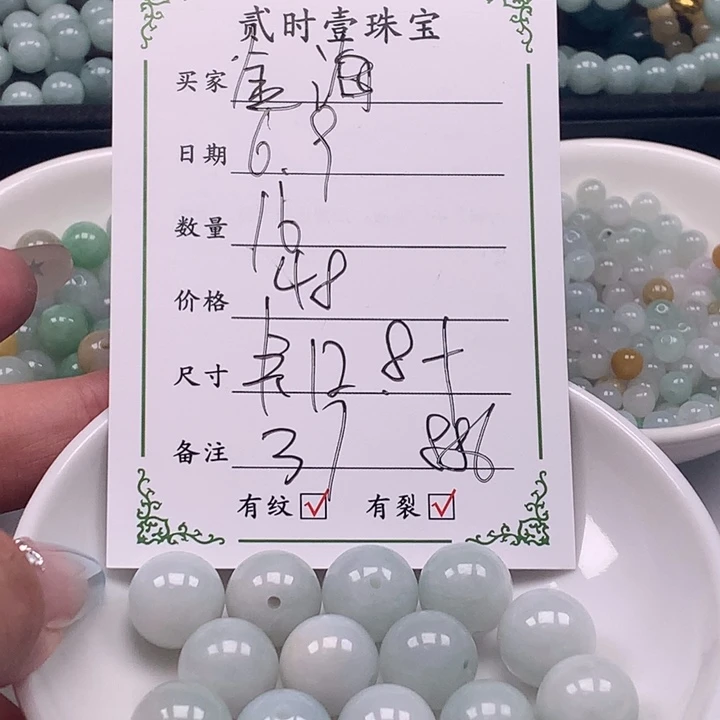 贰时壹珠宝
买家
日期 6.9
数量 16
价格 48
尺寸 12.8+
备注 37 886
有纹 ☑ 有裂 ☑